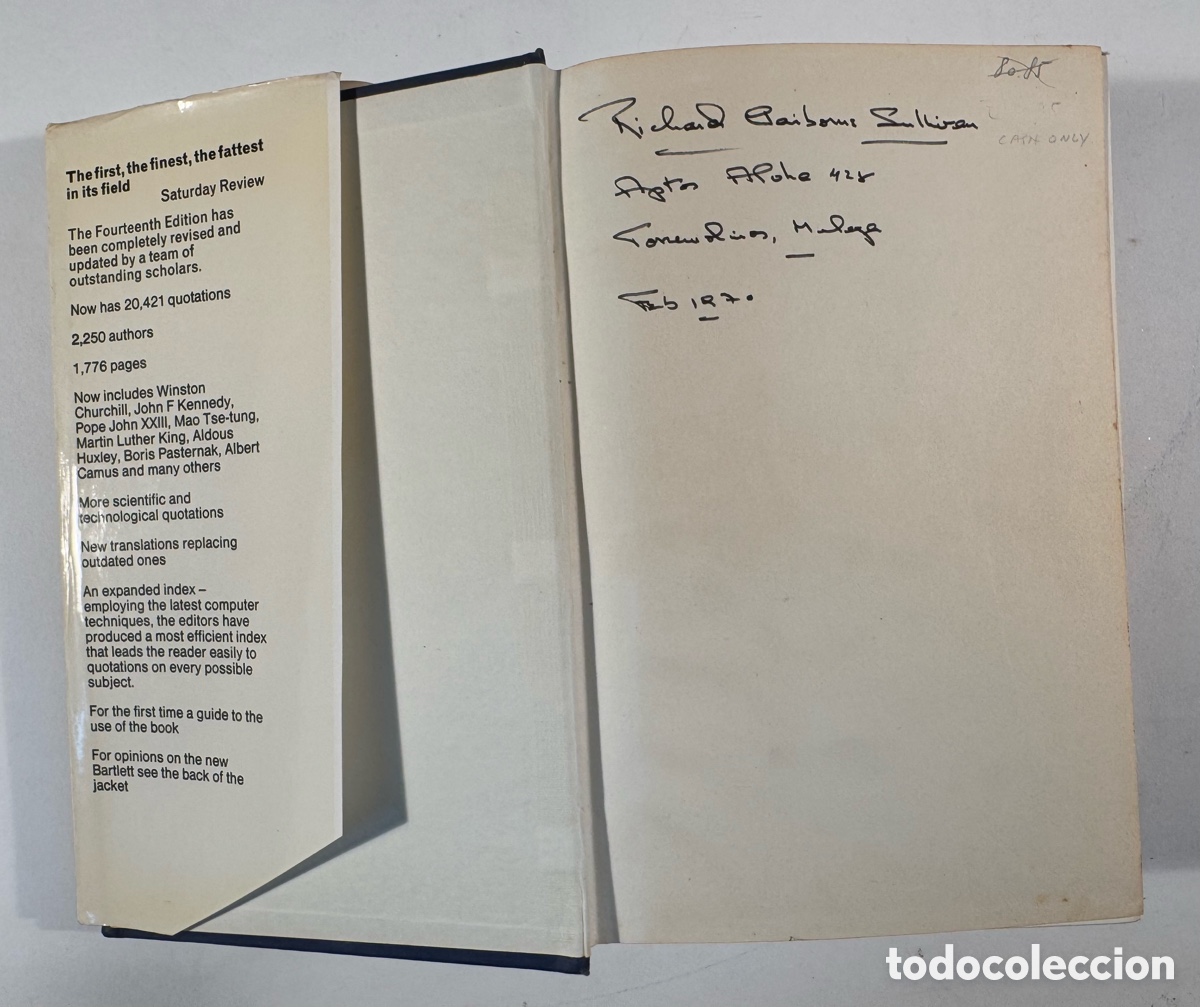 The first, the finest, the fattest
in its field
Saturday Review
The Fourteenth Edition has
been completely revised and
updated by a team of
outstanding scholars.
Now has 20,421 quotations
2,250 authors
1,776 pages
Now includes Winston
Churchill, John F Kennedy,
Pope John XXIII, Mao Tse-tung,
Martin Luther King, Aldous
Huxley, Boris Pasternak, Albert
Camus and many others
More scientific and
technological quotations
New translations replacing
outdated ones
An expanded index –
employing the latest computer
techniques, the editors have
produced a most efficient index
that leads the reader easily to
quotations on every possible
subject.
For the first time a guide to the
use of the book
For opinions on the new
Bartlett see the back of the
jacket
CASH ONLY
Richard Sullivan
Aptos Aloha 428
Torremolinos, Malaga
Feb 1970
todocoleccion